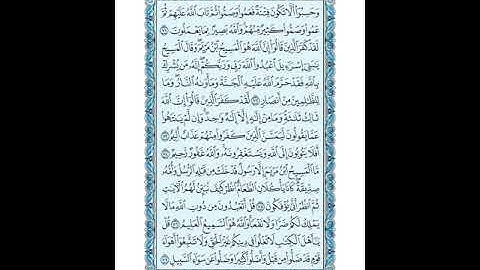 وَحَسِبُوٓا۟ أَلَّا تَكُونَ فِتْنَةٌ فَعَمُوا۟ وَصَمُّوا۟ ثُمَّ تَابَ ٱللَّهُ عَلَيْهِمْ ثُمَّ
عَمُوا۟ وَصَمُّوا۟ كَثِيرٌ مِّنْهُمْ وَٱللَّهُ بَصِيرٌۢ بِمَا يَعْمَلُونَ ٧١
لَقَدْ كَفَرَ ٱلَّذِينَ قَالُوٓا۟ إِنَّ ٱللَّهَ هُوَ ٱلْمَسِيحُ ٱبْنُ مَرْيَمَ وَقَالَ ٱلْمَسِيحُ
يَٰبَنِىٓ إِسْرَٰٓءِيلَ ٱعْبُدُوا۟ ٱللَّهَ رَبِّى وَرَبَّكُمْ إِنَّهُۥ مَن يُشْرِكْ
بِٱللَّهِ فَقَدْ حَرَّمَ ٱللَّهُ عَلَيْهِ ٱلْجَنَّةَ وَمَأْوَىٰهُ ٱلنَّارُ وَمَا
لِلظَّٰلِمِينَ مِنْ أَنصَارٍ ٧٢ لَّقَدْ كَفَرَ ٱلَّذِينَ قَالُوٓا۟ إِنَّ ٱللَّهَ
ثَالِثُ ثَلَٰثَةٍ وَمَا مِنْ إِلَٰهٍ إِلَّآ إِلَٰهٌ وَٰحِدٌ وَإِن لَّمْ يَنتَهُوا۟
عَمَّا يَقُولُونَ لَيَمَسَّنَّ ٱلَّذِينَ كَفَرُوا۟ مِنْهُمْ عَذَابٌ أَلِيمٌ ٧٣
أَفَلَا يَتُوبُونَ إِلَى ٱللَّهِ وَيَسْتَغْفِرُونَهُۥ وَٱللَّهُ غَفُورٌ رَّحِيمٌ ٧٤
مَّا ٱلْمَسِيحُ ٱبْنُ مَرْيَمَ إِلَّا رَسُولٌ قَدْ خَلَتْ مِن قَبْلِهِ ٱلرُّسُلُ وَأُمُّهُۥ
صِدِّيقَةٌ كَانَا يَأْكُلَانِ ٱلطَّعَامَ ٱنظُرْ كَيْفَ نُبَيِّنُ لَهُمُ ٱلْءَايَٰتِ
ثُمَّ ٱنظُرْ أَنَّىٰ يُؤْفَكُونَ ٧٥ قُلْ أَتَعْبُدُونَ مِن دُونِ ٱللَّهِ مَا لَا
يَمْلِكُ لَكُمْ ضَرًّا وَلَا نَفْعًا وَٱللَّهُ هُوَ ٱلسَّمِيعُ ٱلْعَلِيمُ ٧٦
قُلْ يَٰٓأَهْلَ ٱلْكِتَٰبِ لَا تَغْلُوا۟ فِى دِينِكُمْ غَيْرَ ٱلْحَقِّ وَلَا تَتَّبِعُوٓا۟ أَهْوَآءَ
قَوْمٍ قَدْ ضَلُّوا۟ مِن قَبْلُ وَأَضَلُّوا۟ كَثِيرًا وَضَلُّوا۟ عَن سَوَآءِ ٱلسَّبِيلِ ٧٧